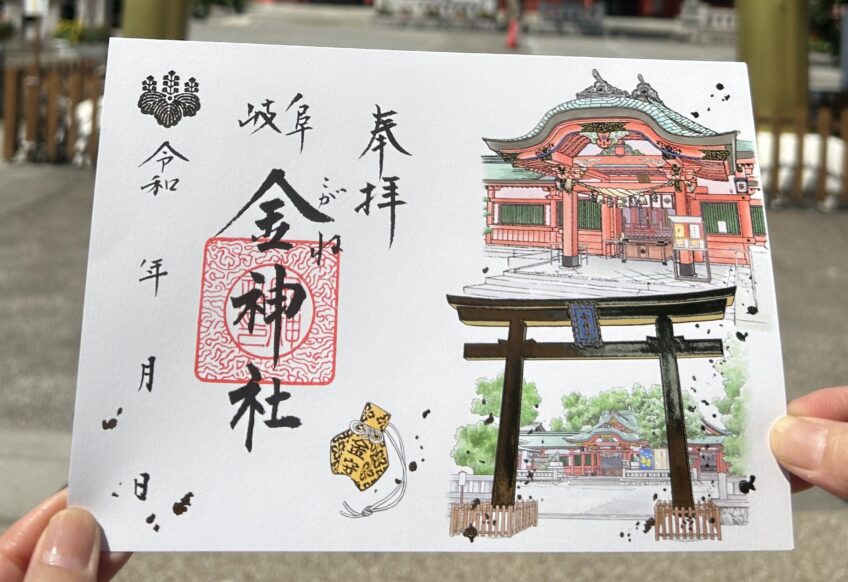 奉拝
岐阜
金神社
こがね
令和 年 月 日
金守